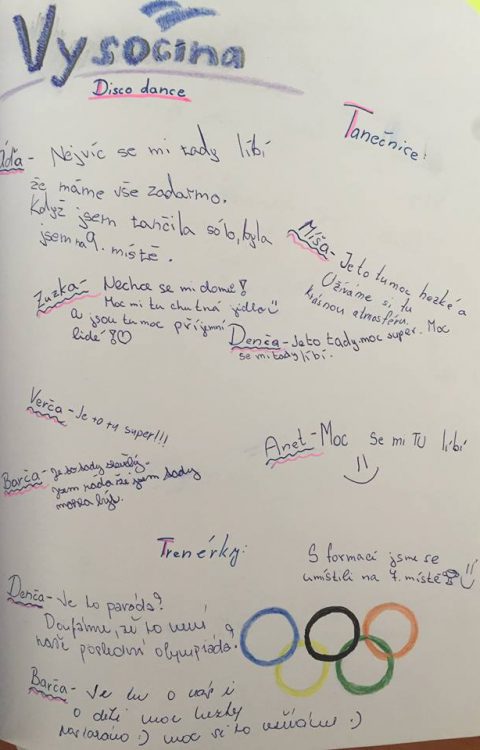 Vysočina
Disco dance
Tanečnice:
áďa - Nejvíc se mi tady líbí
že máme vše zadarmo.
Když jsem tančila sólo, byla
jsem na 9. místě.
Míša - Je to tu moc hezké a
Užíváme si tu
krásnou atmosféru.
Zuzka - Nechce se mi domů!
Moc mi tu chutná jídlo
a jsou tu moc příjemní
lidé!
Denča - Je to tady moc super. Moc
se mi tady líbí.
Verča - Je to tu super!!!
Anet - Moc se mi TU líbí
Barča - Je to tady skvělý.
jsem ráda že jsem tady
mohla být.
Trenérky:
S formací jsme se
umístili na 7. místě
Denča - Je to paráda?
Doufáme, že to není
naše poslední olympiáda?
Barča - Je tu o nás i
o děti moc hezky
postaráno :) moc si to užíváme :)